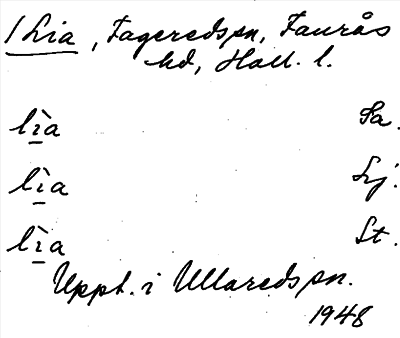 / Lia, Fageredspn, Faurås
hd, Hall. l.
lìa Sa.
lìa Lj.
lìa St.
Uppt. i Ullaredspn.
1948